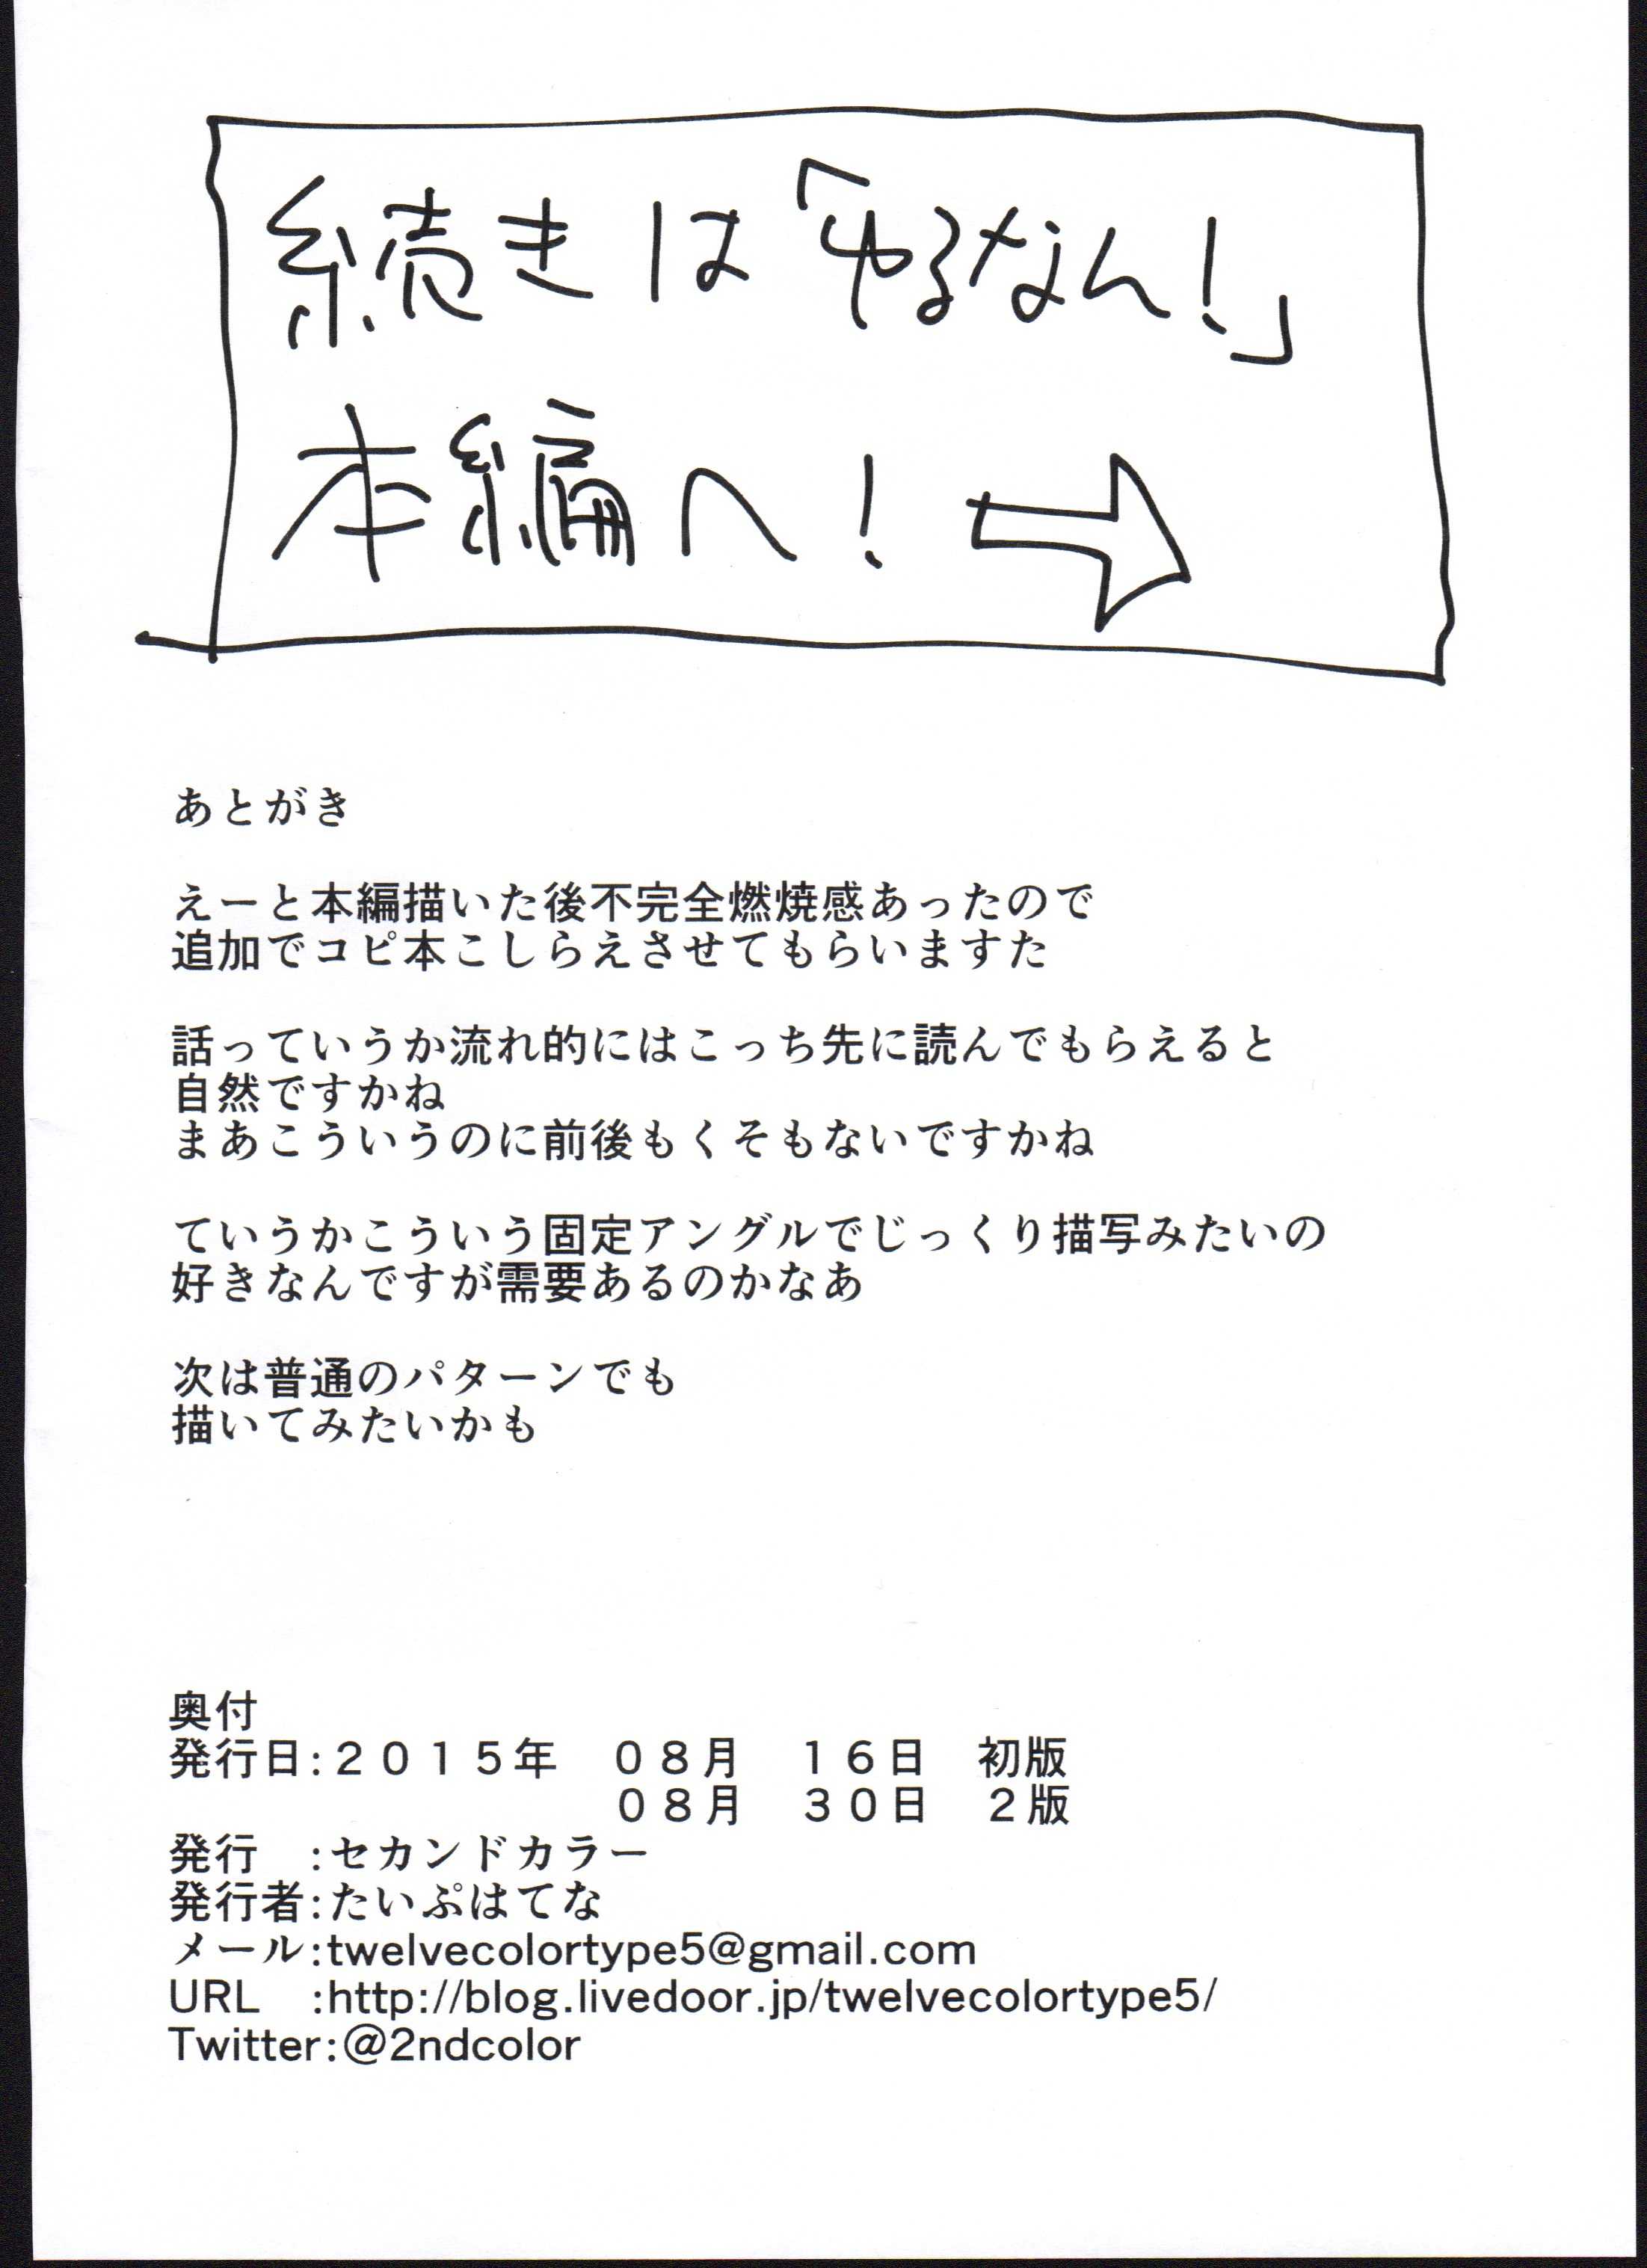 続きは「ゆるなん!」
本編へ!
あとがき
えーと本編描いた後不完全燃焼感あったので
追加でコピ本こしらえさせてもらいますた
話っていうか流れ的にはこっち先に読んでもらえると
自然ですかね
まあこういうのに前後もくそもないですかね
ていうかこういう固定アングルでじっくり描写みたいの
好きなんですが需要あるのかなあ
次は普通のパターンでも
描いてみたいかも
奥付
発行日:2015年 08月 16日 初版
08月 30日 2版
発行 :セカンドカラー
発行者:たいぷはてな
メール:twelvecolortype5@gmail.com
URL :http://blog.livedoor.jp/twelvecolortype5/
Twitter:@2ndcolor